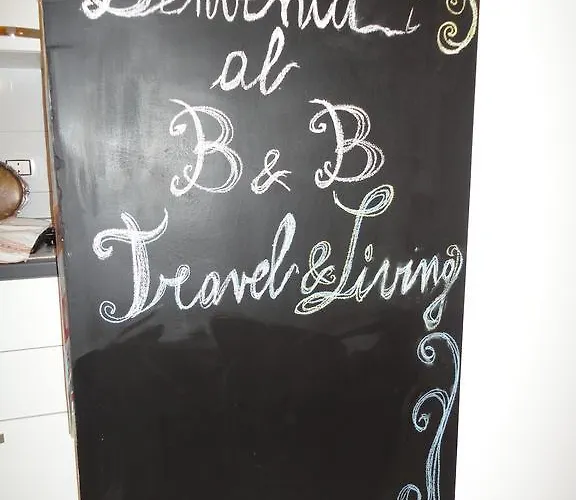 Benvenuti
al
B & B
Travel & Living